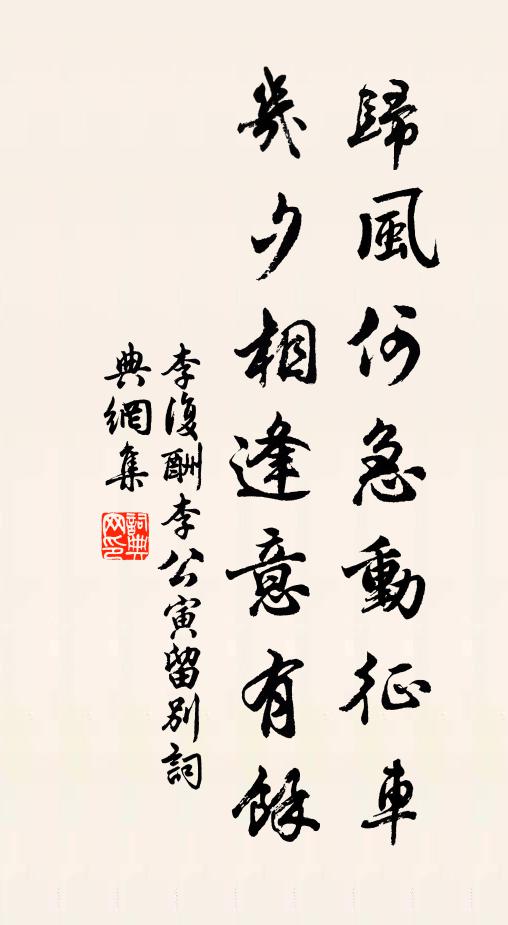 歸風何急動征車
幾夕相逢意有餘
李復酬李公寅留別詞
典網集
詞典网印